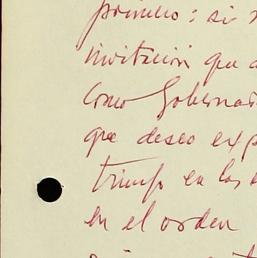 primero: si
invitación que
como Gobernad
que deseo exp
triunfo en las
en el orden